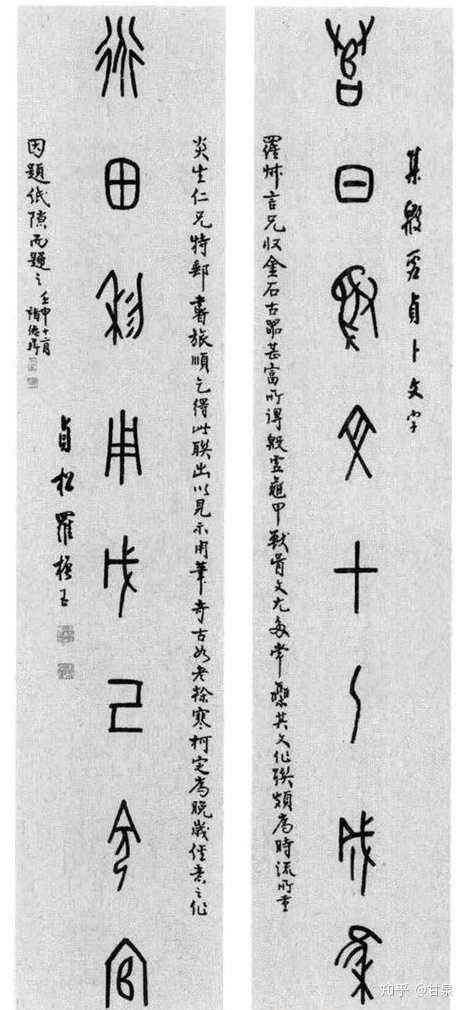 集殷虛貞卜文字
日 十
羅叔言兄收金石古器甚富所得殷虛龜甲獸骨文尤多常集其文作聯頗為時流所重
炎生仁兄特郵書旅順乞得此聯出以見示用筆奇古如老榦寒柯定為晚歲經意之作
田利用戊己令官
貞松羅振玉
因題紙隙而題之 壬申十二月
褚德彝
知乎 @甘泉